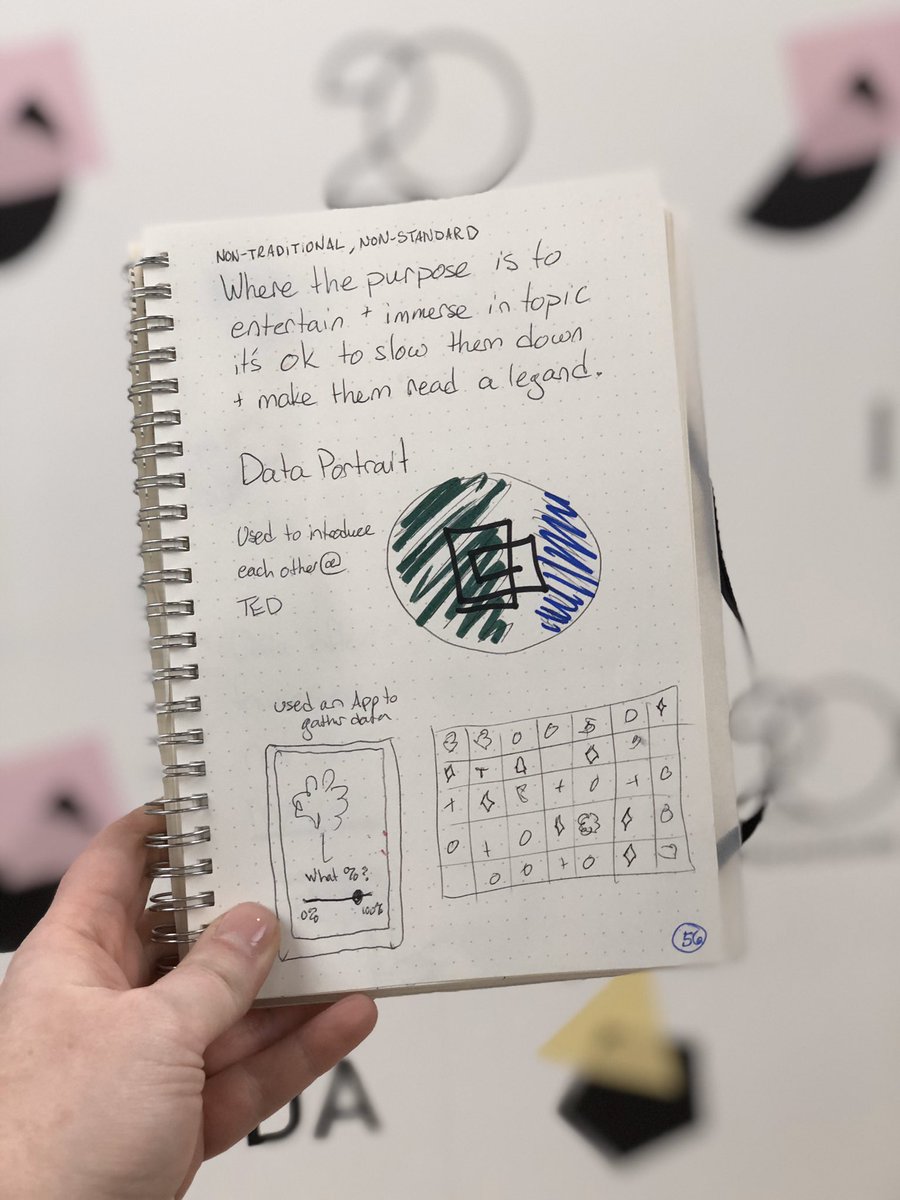 20
NON-TRADITIONAL, NON-STANDARD
Where the purpose is to
entertain + immerse in topic
it's ok to slow them down
+ make them read a legand.
Data Portrait
Used to introduce
each other@
TED
used an App to
gather data
What %?
0% 100%
56
DA